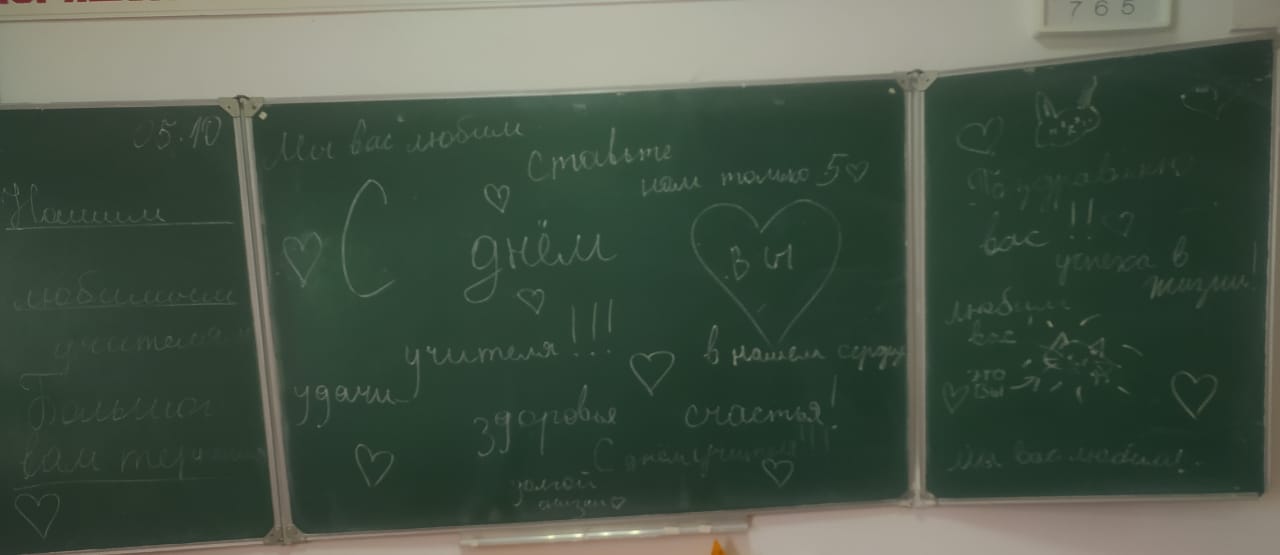 765
05.10
Нашим
любимым
учителям
Большого
вам терпения
Мы вас любим
Ставьте
нам только 5
С
днём
учителя!!!
вы
в нашем сердце
удачи
здоровья
счастья!
С днём учителя!!!
долгой
жизни
Поздравляю
вас!!
успеха в
жизни!
любим
вас
это
вы
Мы вас любим!